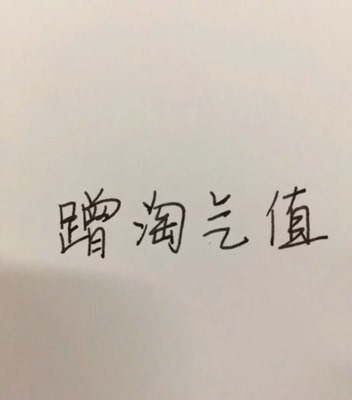 蹭淘气值